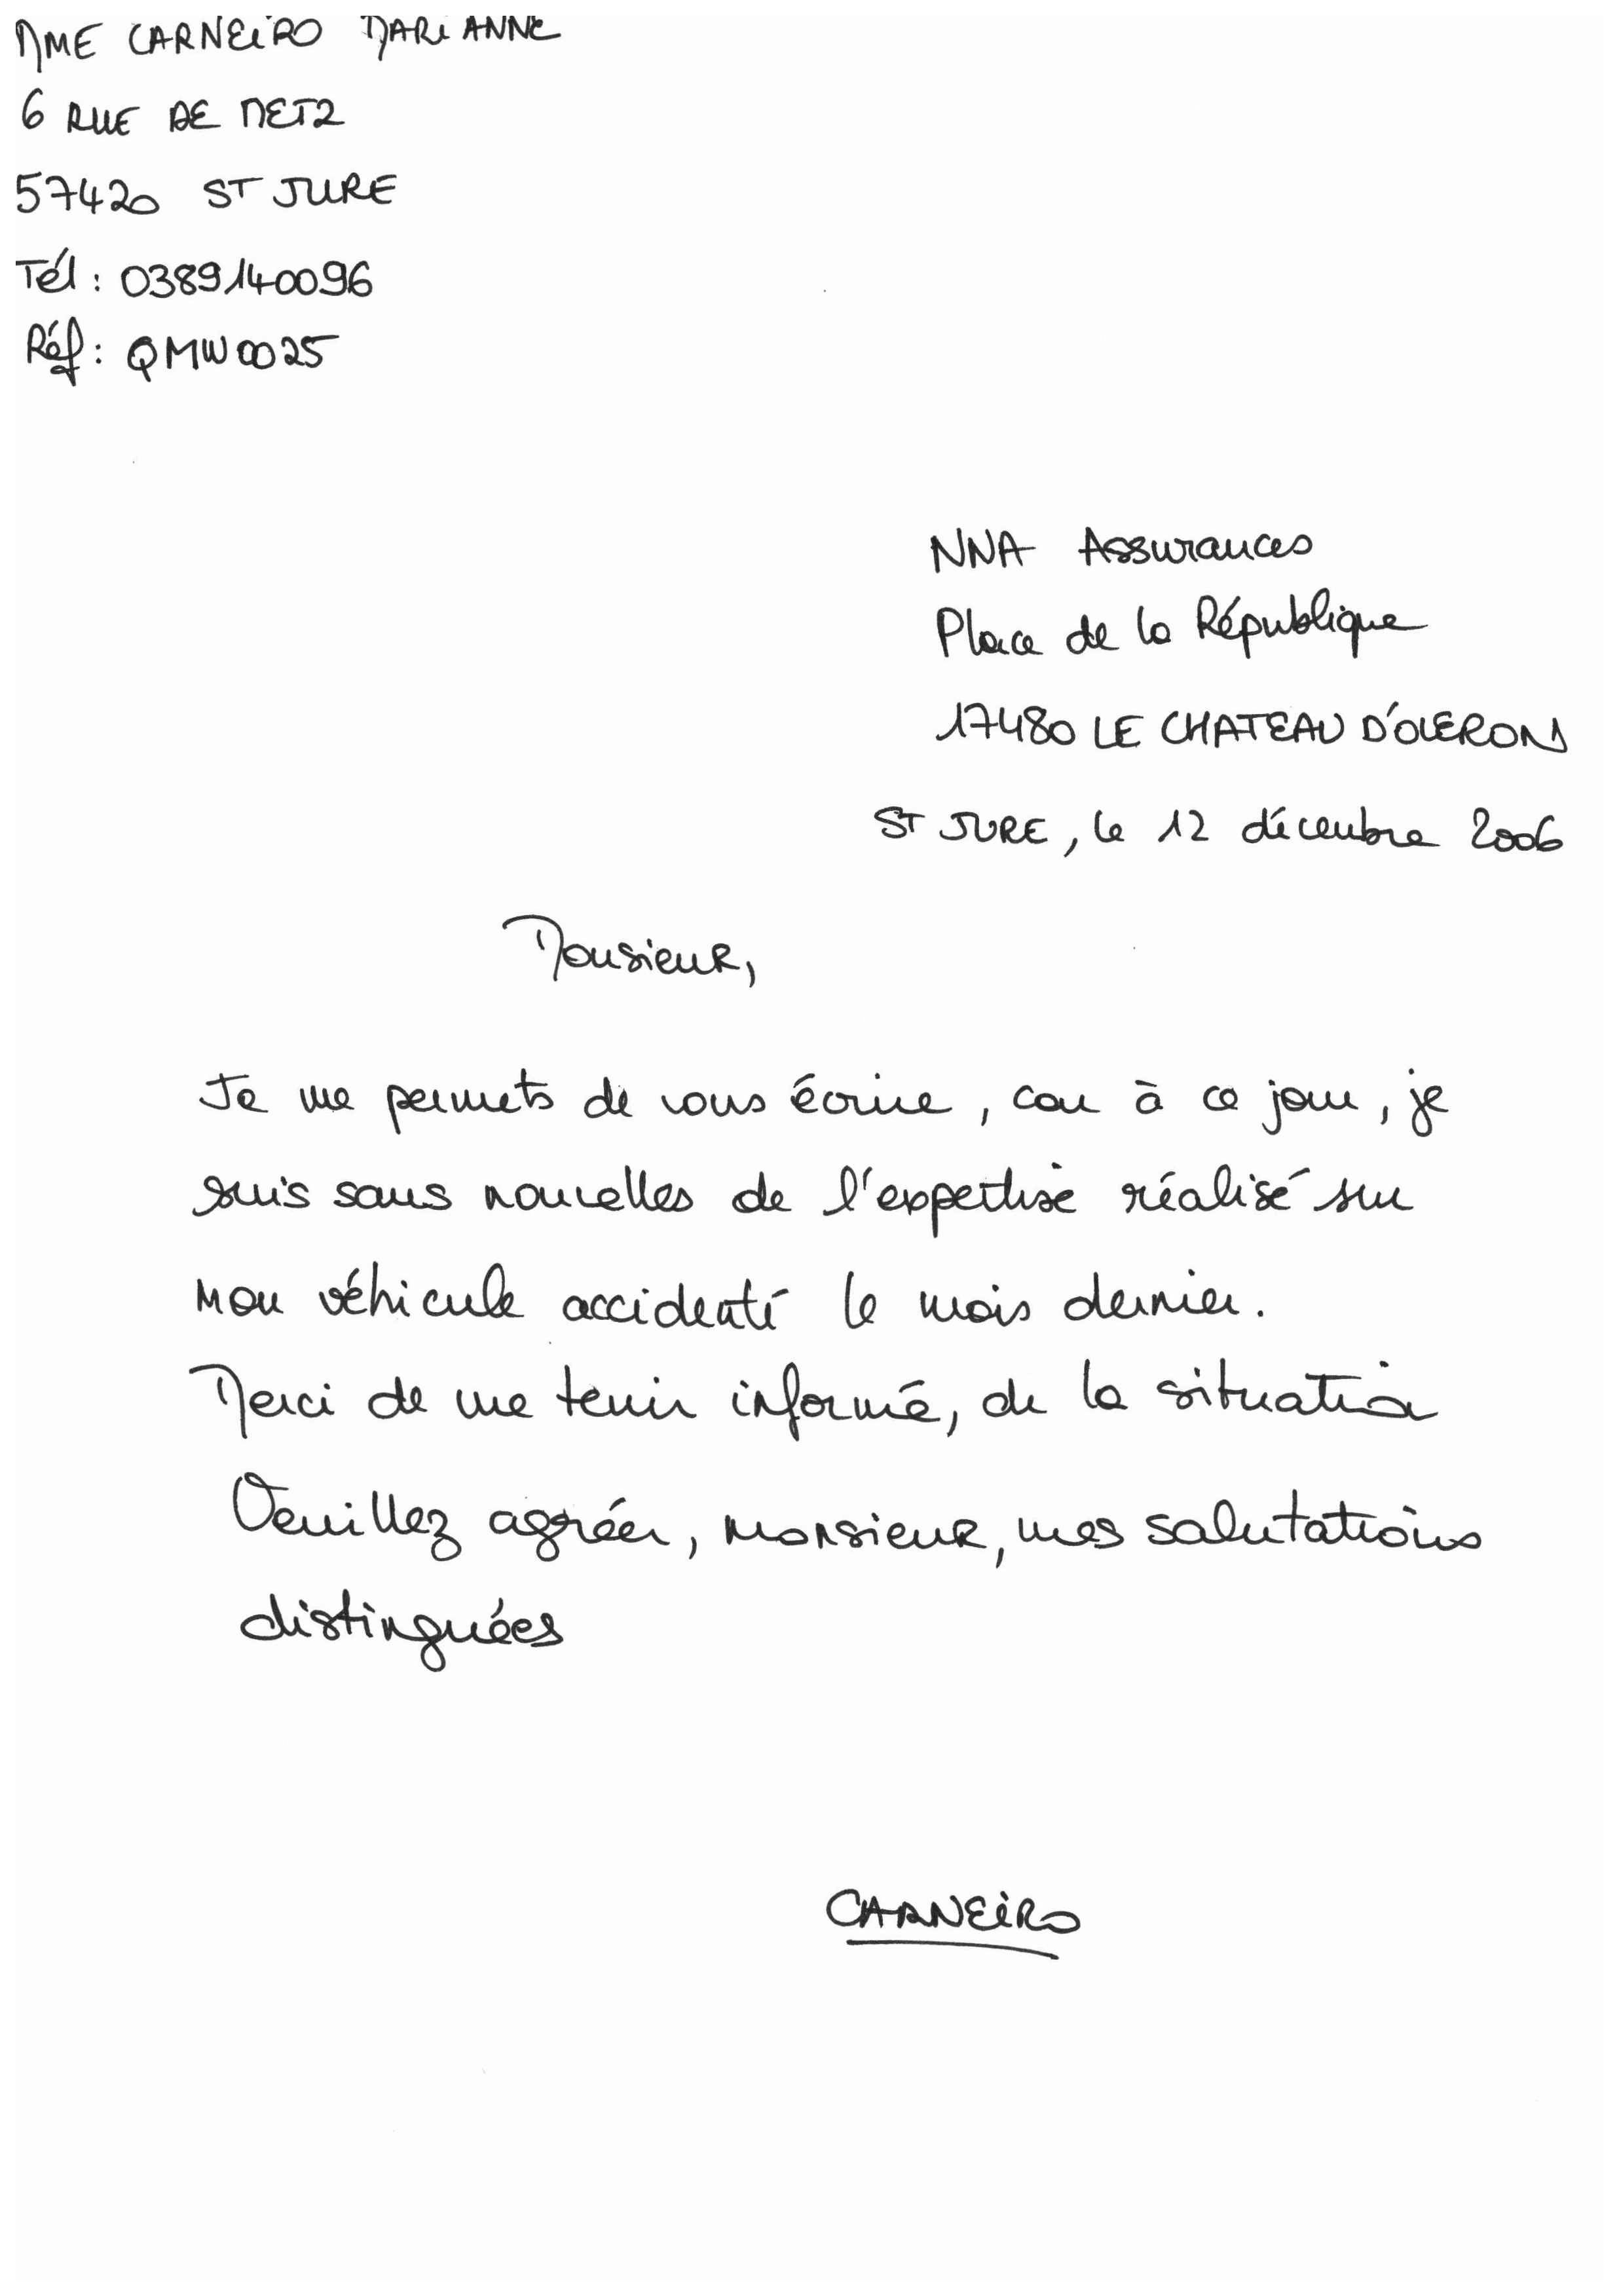 MME CARNEIRO MARIANNE
6 RUE DE METZ
57420 ST JURE
Tél : 0389140096
Réf : QMW0025
NNA Assurances
Place de la République
17480 LE CHATEAU D'OLERON
ST JURE, le 12 décembre 2006
Monsieur,
Je me permets de vous écrire, car à ce jour, je
suis sans nouvelles de l'expertise réalisé sur
mon véhicule accidenté le mois dernier.
Merci de me tenir informé, de la situation
Veuillez agréer, monsieur, mes salutations
distinguées
CARNEIRO